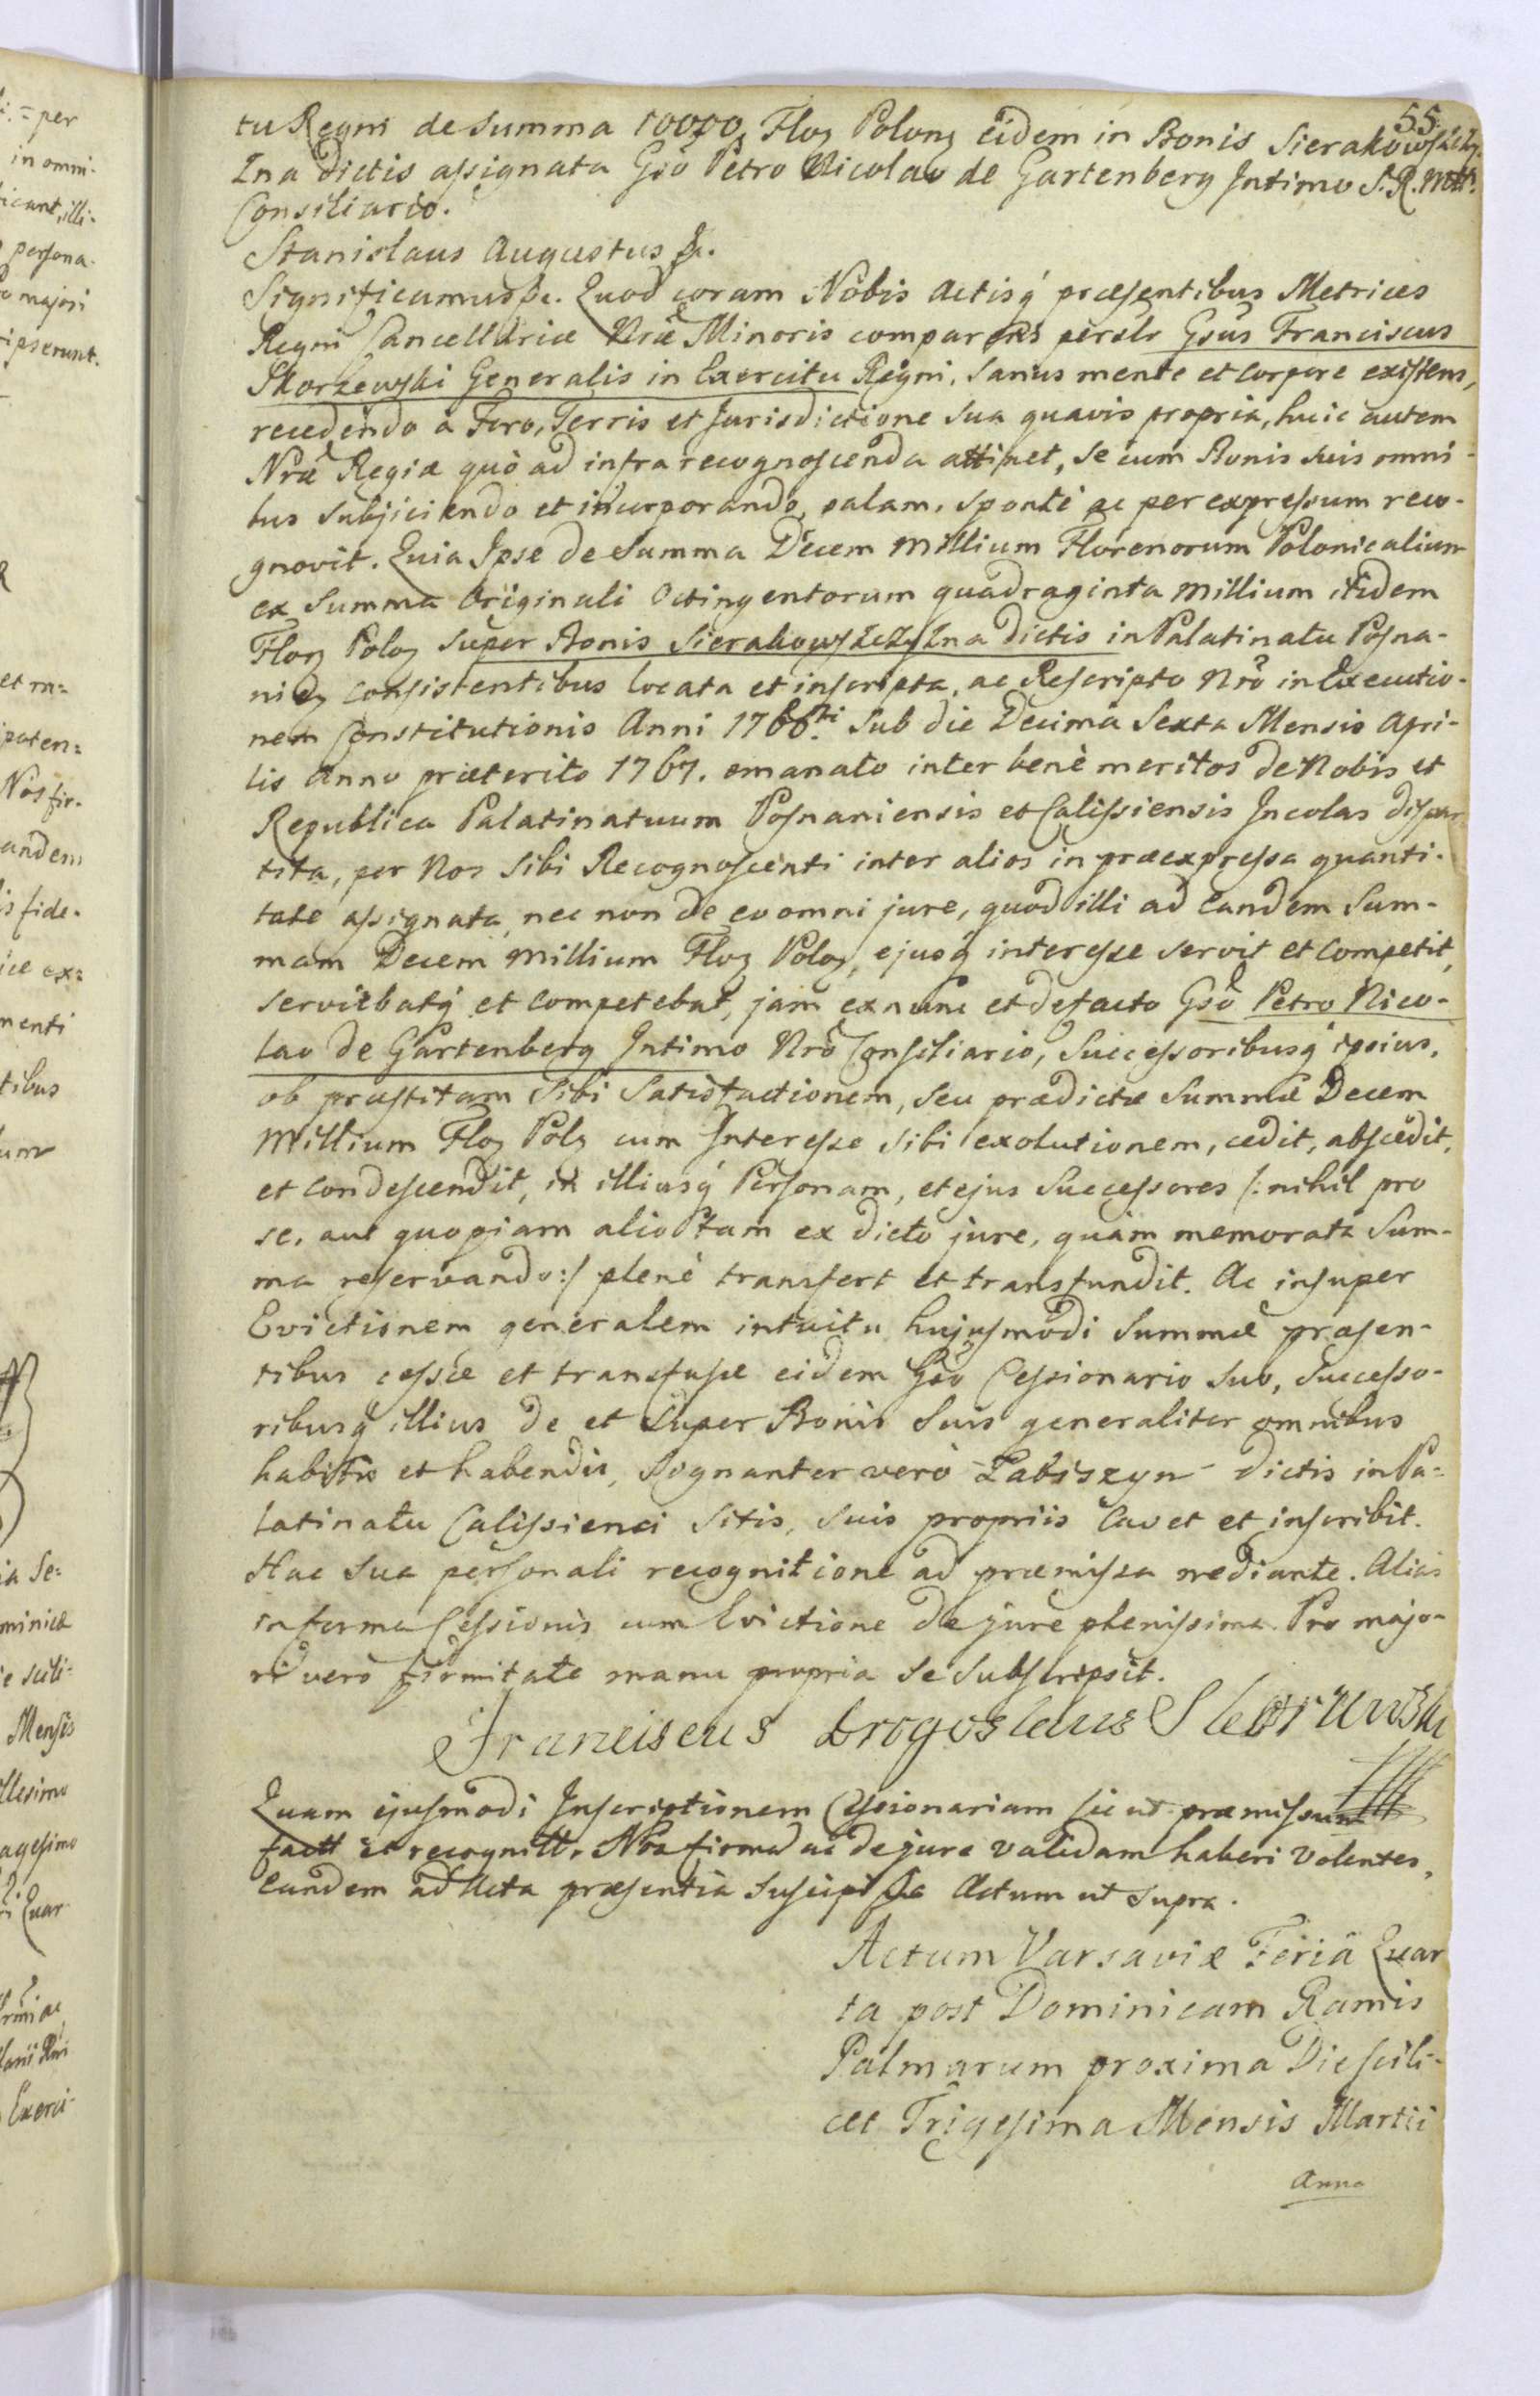 55.
tu Regni de Summa 10000, Floz Polonz eidem in Bonis Sierakowszczy-
zna dictis assignata Gsō Petro Nicolao de Gartenberg Intimo S. R. Mtt.
Consiliario.
Stanislaus Augustus &c.
Significamus &c. Quod coram Nobis Actisq́ præsentibus Metrices
Regni Cancellariæ Nræ Minoris comparens persir Gsus Franciscus
Skorzewski Generalis in Exercitu Regni, sanus mente et corpore existens,
recedendo à Foro, Terris et Jurisdictione sua quavis propria, huic autem
Nræ Regiæ quò ad infra recognoscenda attinet, se cum Bonis suis omni-
bus subjiciendo et incorporando, palam, spontè ac per expressum reco-
gnovit. Quia Ipse de Summa Decem millium Florenorum Polonicalium
ex Summa Originali Octingentorum quadraginta millium itidem
Floz Poloz super Bonis Sierakowszczyzna dictis in Palatinatu Posna-
niez consistentibus locata et inscripta, ac Rescripto Nrō in Executio-
nem Constitutionis Anni 1766.ti Sub die Decima Sexta Mensis Apri-
lis Anno præterito 1767. emanato inter benè meritos de Nobis et
Republica Palatinatuum Posnaniensis et Calissiensis Incolas dispar
tita, per Nos Sibi Recognoscenti inter alios in præexpressa quanti-
tate assignata, nec non de eo omni jure, quod illi ad eandem Sum-
mam Decem millium Floz Poloz, ejusq́ interesse servit et competit,
serviebatq́ et competebat, jam ex nunc et de facto Gsō Petro Nico-
lao de Gartenberg Intimo Nrō Consiliario, Successoribusq́ ipsius,
ob præstitam Sibi Satisfactionem, seu prædictæ Summæ Decem
Millium Floz Polz cum Interesse sibi exolutionem, cedit, abscedit,
et condescendit, in illiusq́ Personam, et ejus Successores /: nihil pro
se, aut quopiam alio tam ex dicto jure, quàm memorata Sum-
ma reservando :/ plenè transfert et transfundit. Ac insuper
Evictionem generalem intuitu hujusmodi Summæ præsen-
tibus cessæ et transfusæ eidem Gsō Cessionario suo, Successo-
ribusq́ illius de et super Bonis Suis generaliter omnibus
habitis et habendis, signanter verò Łabiszyn dictis in Pa-
latinatu Calissiensi sitis, suis propriis cavet et inscribit.
Hac sua personali recognitione ad præmissa mediante. Alias
in forma Cessionis cum Evictione de jure plenissima. Pro majo-
ri verò firmitate manu propria se subscripsit.
Franciscus Drogoslaus Skorzewski
Quam ejusmodi Inscriptionem Cessionariam sic ut præmissum
factt et recognitt. Nos firmā ac de jure validam haberi volentes,
Eandem ad Acta præsentia suscipi &c Actum ut supra.
Actum Varsaviæ Feriâ Quar
ta post Dominicam Ramis
Palmarum proxima Die scili-
cet Trigesima Mensis Martii
Anno